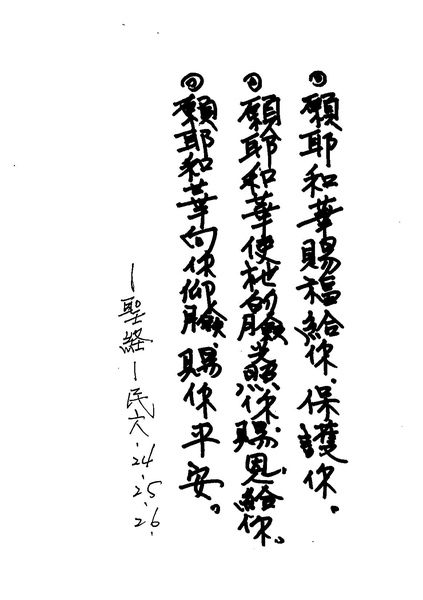 ◎願耶和華賜福給你.保護你.
◎願耶和華使祂的臉光照你.賜恩給你。
◎願耶和華向你仰臉.賜你平安。
—聖経—民六.24.25.26.